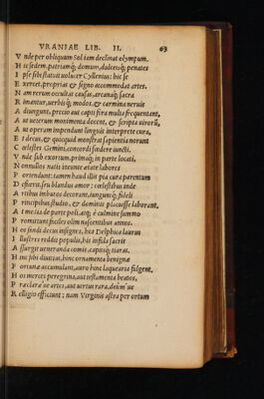 VRANIAE LIB. II. 63
V nde per obliquum Sol iam declinat olympum.
H ic sedem, patriamq́; domum, dulcesq́; penates
I pse sibi statuit uolucer Cyllenius: hic se
E xercet, proprias & signo accommodat artes.
N am rerum occultat causas, arcanaq́; sacra
R imantur, uerbisq́; modos, & carmina neruis
A diungunt, procio aut capti sira multa frequentant,
A ut ueterum maximonta docent, & scripta uirorũ,
A ut operam impendunt linguis interprete cura,
E t decus, & monstrat sapientia norunt
C œlestes Gemini, concordi foedere iuncti.
V nde sub exortum, primisq́; in parte locati,
N onnullos nati ineunte ætate labores
P ortendunt: tamen haud illi pia cura parentum
D efueris, seu blandus amor: cœlestibus inde
A rtibus imbutos decorant, iunguntq́; fideli
P rincipibus studio, & dominis placuisse laborant,
A t media de parte poli, atq́; è culmine summo
P romittunt faciles olim nascentibus annos.
H os findi decus insignes, hos Delphica laurus
I llustres reddit populis, his insula sacris
A ssurgit ueneranda comis, capitisq́; tiaras.
H inc sibi diuitias, hinc ornamenta benignæ
F ortunæ accumulant, auro hinc laquearia fulgent,
H os merces peregrina, aut testamenta beatos,
P ræclaræ ue artes, aut uirtus rara, deúm ue
R elligio efficiunt: nam Virginis astra per ortum